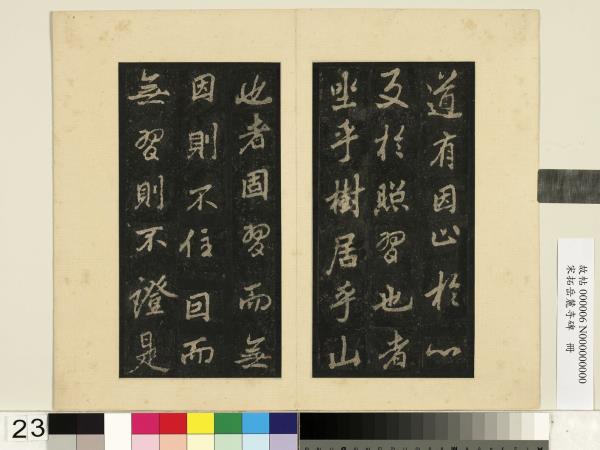 道有因止於心
及於照習也者
坐乎樹居乎山
也者固習而無
因則不住因而
無習則不證是
故帖 000006 N000000000
宋拓岳麓寺碑 冊
23